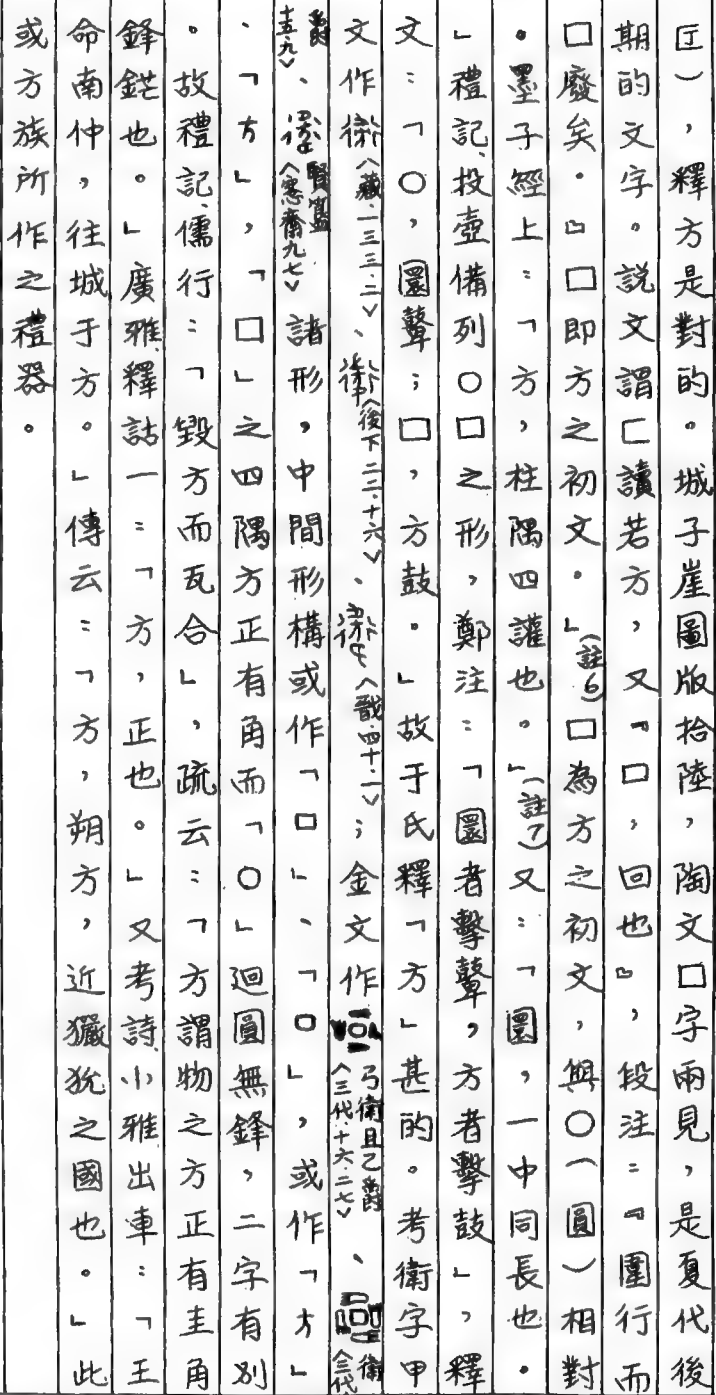 匚），釋方是對的。城子崖圖版拾陸，陶文口字兩見，是夏代後
期的文字。説文謂匚讀若方，又『囗，回也』，段注：『圍行而
囗廢矣。』囗即方之初文。」（註6）囗為方之初文，與○（圓）相對
。墨子經上：「方，柱隅四讙也。」（註7）又：「圜，一中同長也。
」禮記、投壺備列○囗之形，鄭注：「圜者擊鼙，方者擊鼓」，釋
文：「○，圜聲；囗，方鼓。」故于氏釋「方」甚的。考衛字甲
文作〈藏·一三三·二〉、〈後下二二·十六〉、〈戩·四十·一〉；金文作弓衛且乙爵〈三代·十六·二七〉、衛〈三代
爵十五·九〉、賢簋〈愙齋九七〉諸形，中間形構或作「囗」、「口」，或作「方」
、「方」，「囗」之四隅方正有角而「○」迴圓無鋒，二字有別
。故禮記、儒行：「毀方而瓦合」，疏云：「方謂物之方正有圭角
鋒鋩也。」廣雅、釋詁一：「方，正也。」又考詩、小雅出車：「王
命南仲，往城于方。」傳云：「方，朔方，近玁狁之國也。」此
或方族所作之禮器。